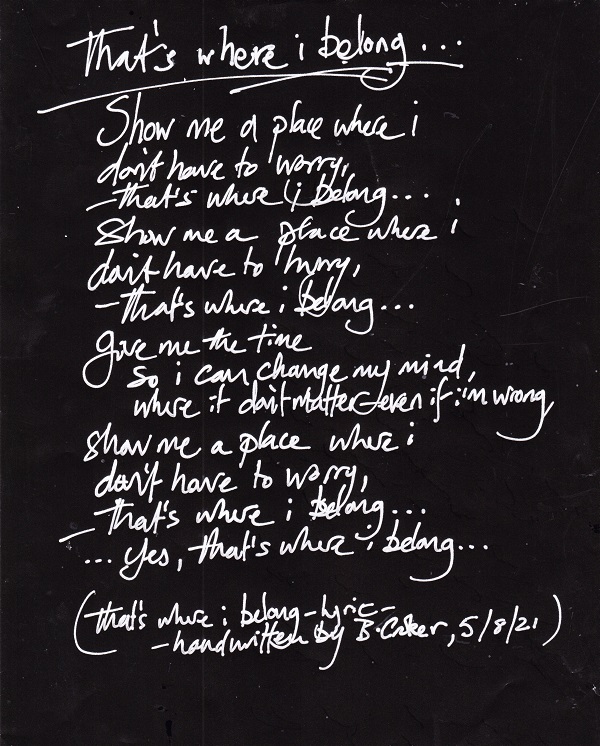 That's where i belong...
Show me a place where i
don't have to worry,
-that's where i belong...
Show me a place where i
don't have to hurry,
-that's where i belong...
give me the time
so i can change my mind,
where it don't matter-even if i'm wrong,
show me a place where i
don't have to worry,
-that's where i belong...
... yes, that's where i belong...
(that's where i belong-lyric-
-handwritten by B. Coker, 5/8/21)